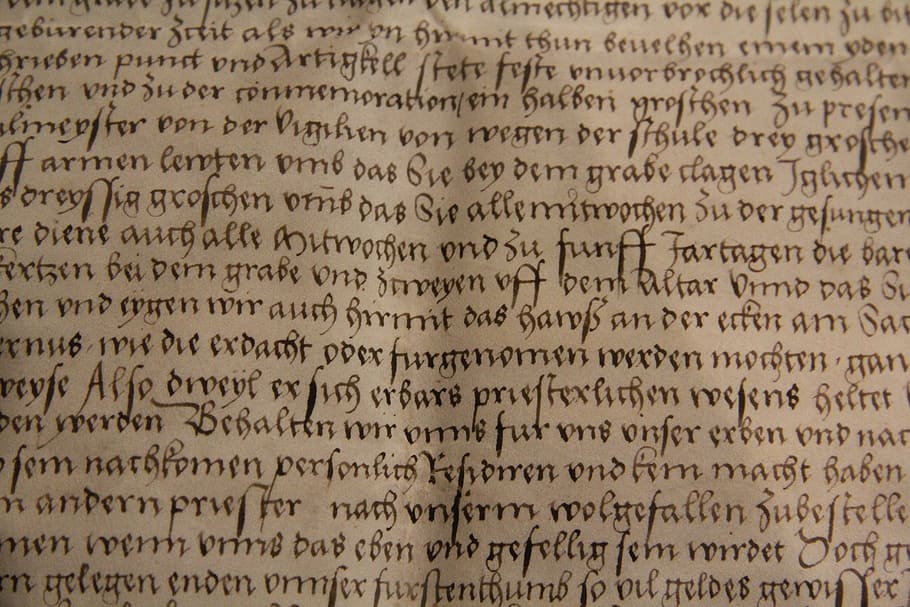 den almechtigen vor die selen zu bit
geburender Zceit als wir yn hirmit thun beuelhen einem yden
hrieben punct vnd Artigkell stete feste vnuorbrochlich gehalten
schen vnd zu der commemoration ein halben groschen zu presen
almeyster von der Vigilien von wegen der schule drey grosche
ff armen lewten vmb das Sie bey dem grabe clagen Iglichem
s dreyssig groschen vmb das Sie alle mitwochen zu der gesungen
re diene auch alle Mitwochen vnd zu funff Jartagen die bar
kertzen bei dem grabe vnd zcweyen vff dem Altar Vnnd das Si
hen vnd eygen wir auch hirmit das hawß an der ecken am Sac
ernus wie die erdacht oder furgenomen werden mochten gan
weyse Also dweyl er sich erbars priesterlichen wesens heltet
den werden Behalten wir vnns fur vns vnser erben vnd nac
sein nachkomen personlich Residiren vnd kein macht haben
n andern priester nach vnserm wolgefallen zubestelle
men wenn vnns das eben vnd gefellig sein wirdet Doch ge
rn gelegen enden vnnser furstenthumb so vil geldes gewisser